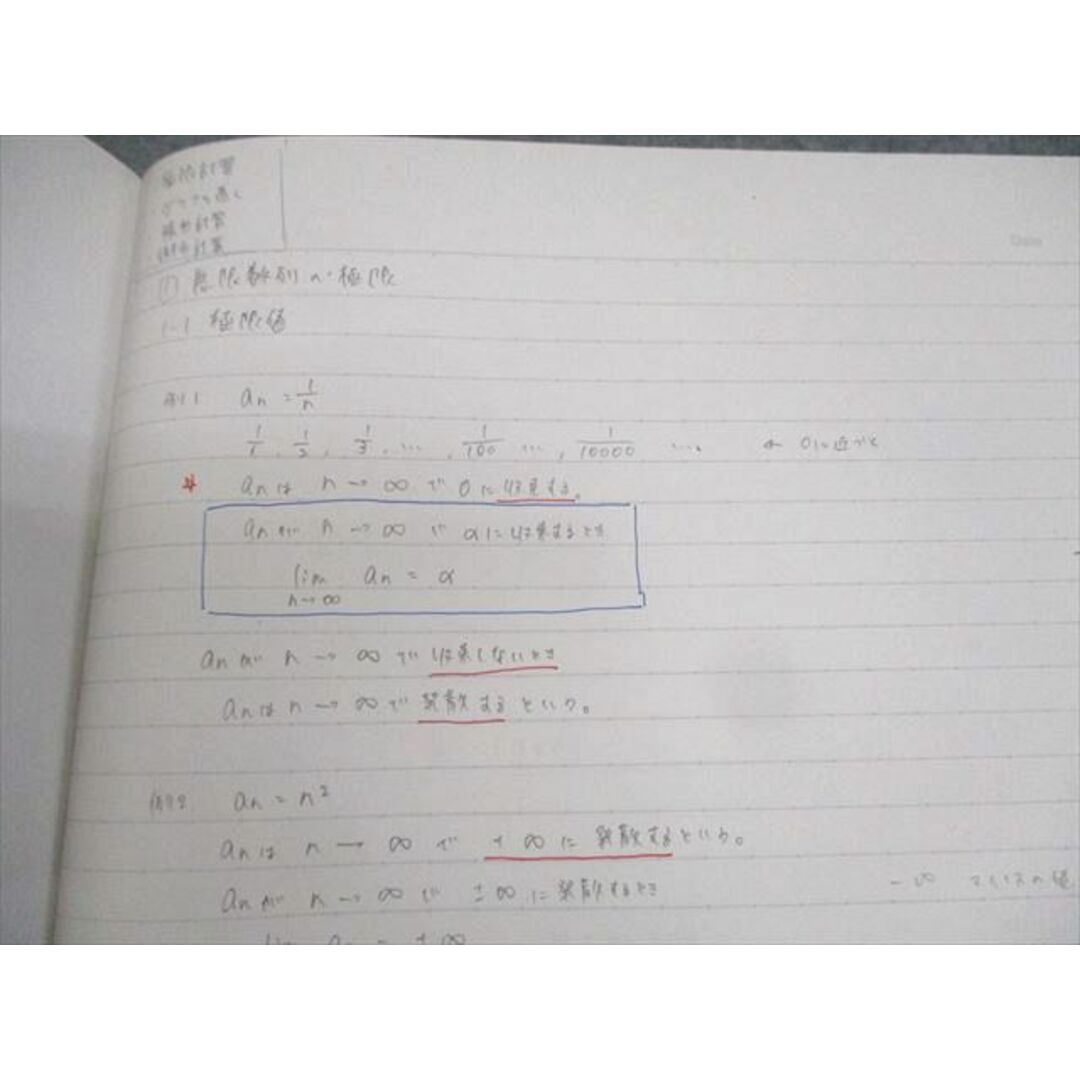 極限計算
グラフを描く
微分計算
積分計算
Date
① 無限数列の極限
1-1 極限値
例1 an = 1/n
1/1, 1/2, 1/3, …, 1/100 …, 1/10000 …, ← 0に近づく
* anは n→∞で 0に収束する。
anが n→∞で αに収束するとき
lim an = α
n→∞
anが n→∞で収束しないとき
anは n→∞で発散するという。
例2 an = n²
anは n→∞で +∞に発散するという。
anが n→∞で ±∞に発散するとき
-∞
lim an = ±∞